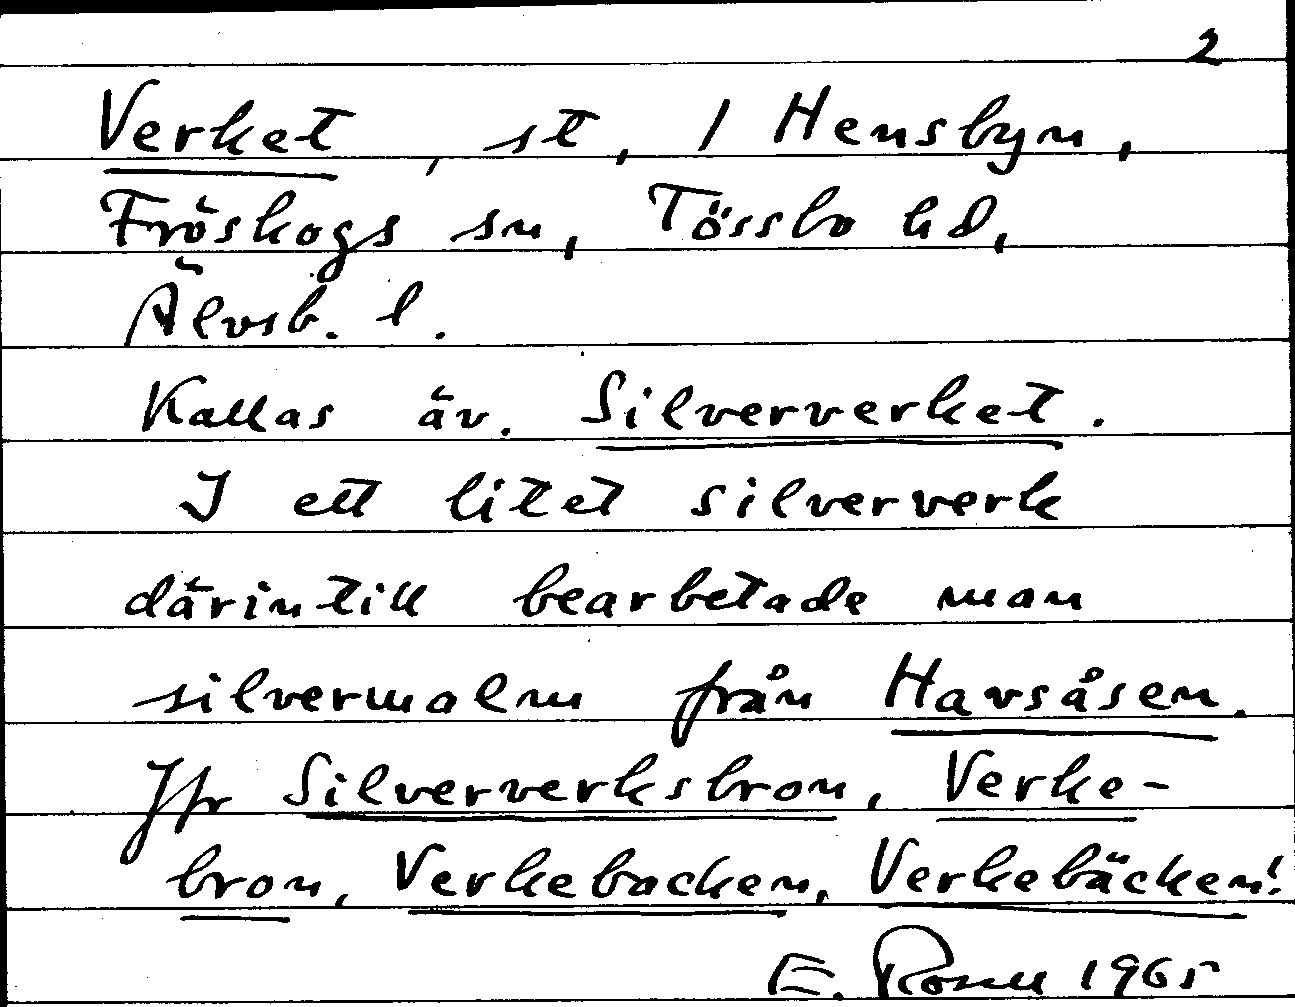 2
Verket, st, 1 Hensbyn,
Fröskogs sn, Tössbo hd,
Älvsb. l.
Kallas äv. Silververket.
I ett litet silververk
därintill bearbetade man
silvermalm från Havsåsen.
Jfr Silververksbron, Verke-
bron, Verkebacken, Verkebäcken!
E. 1965